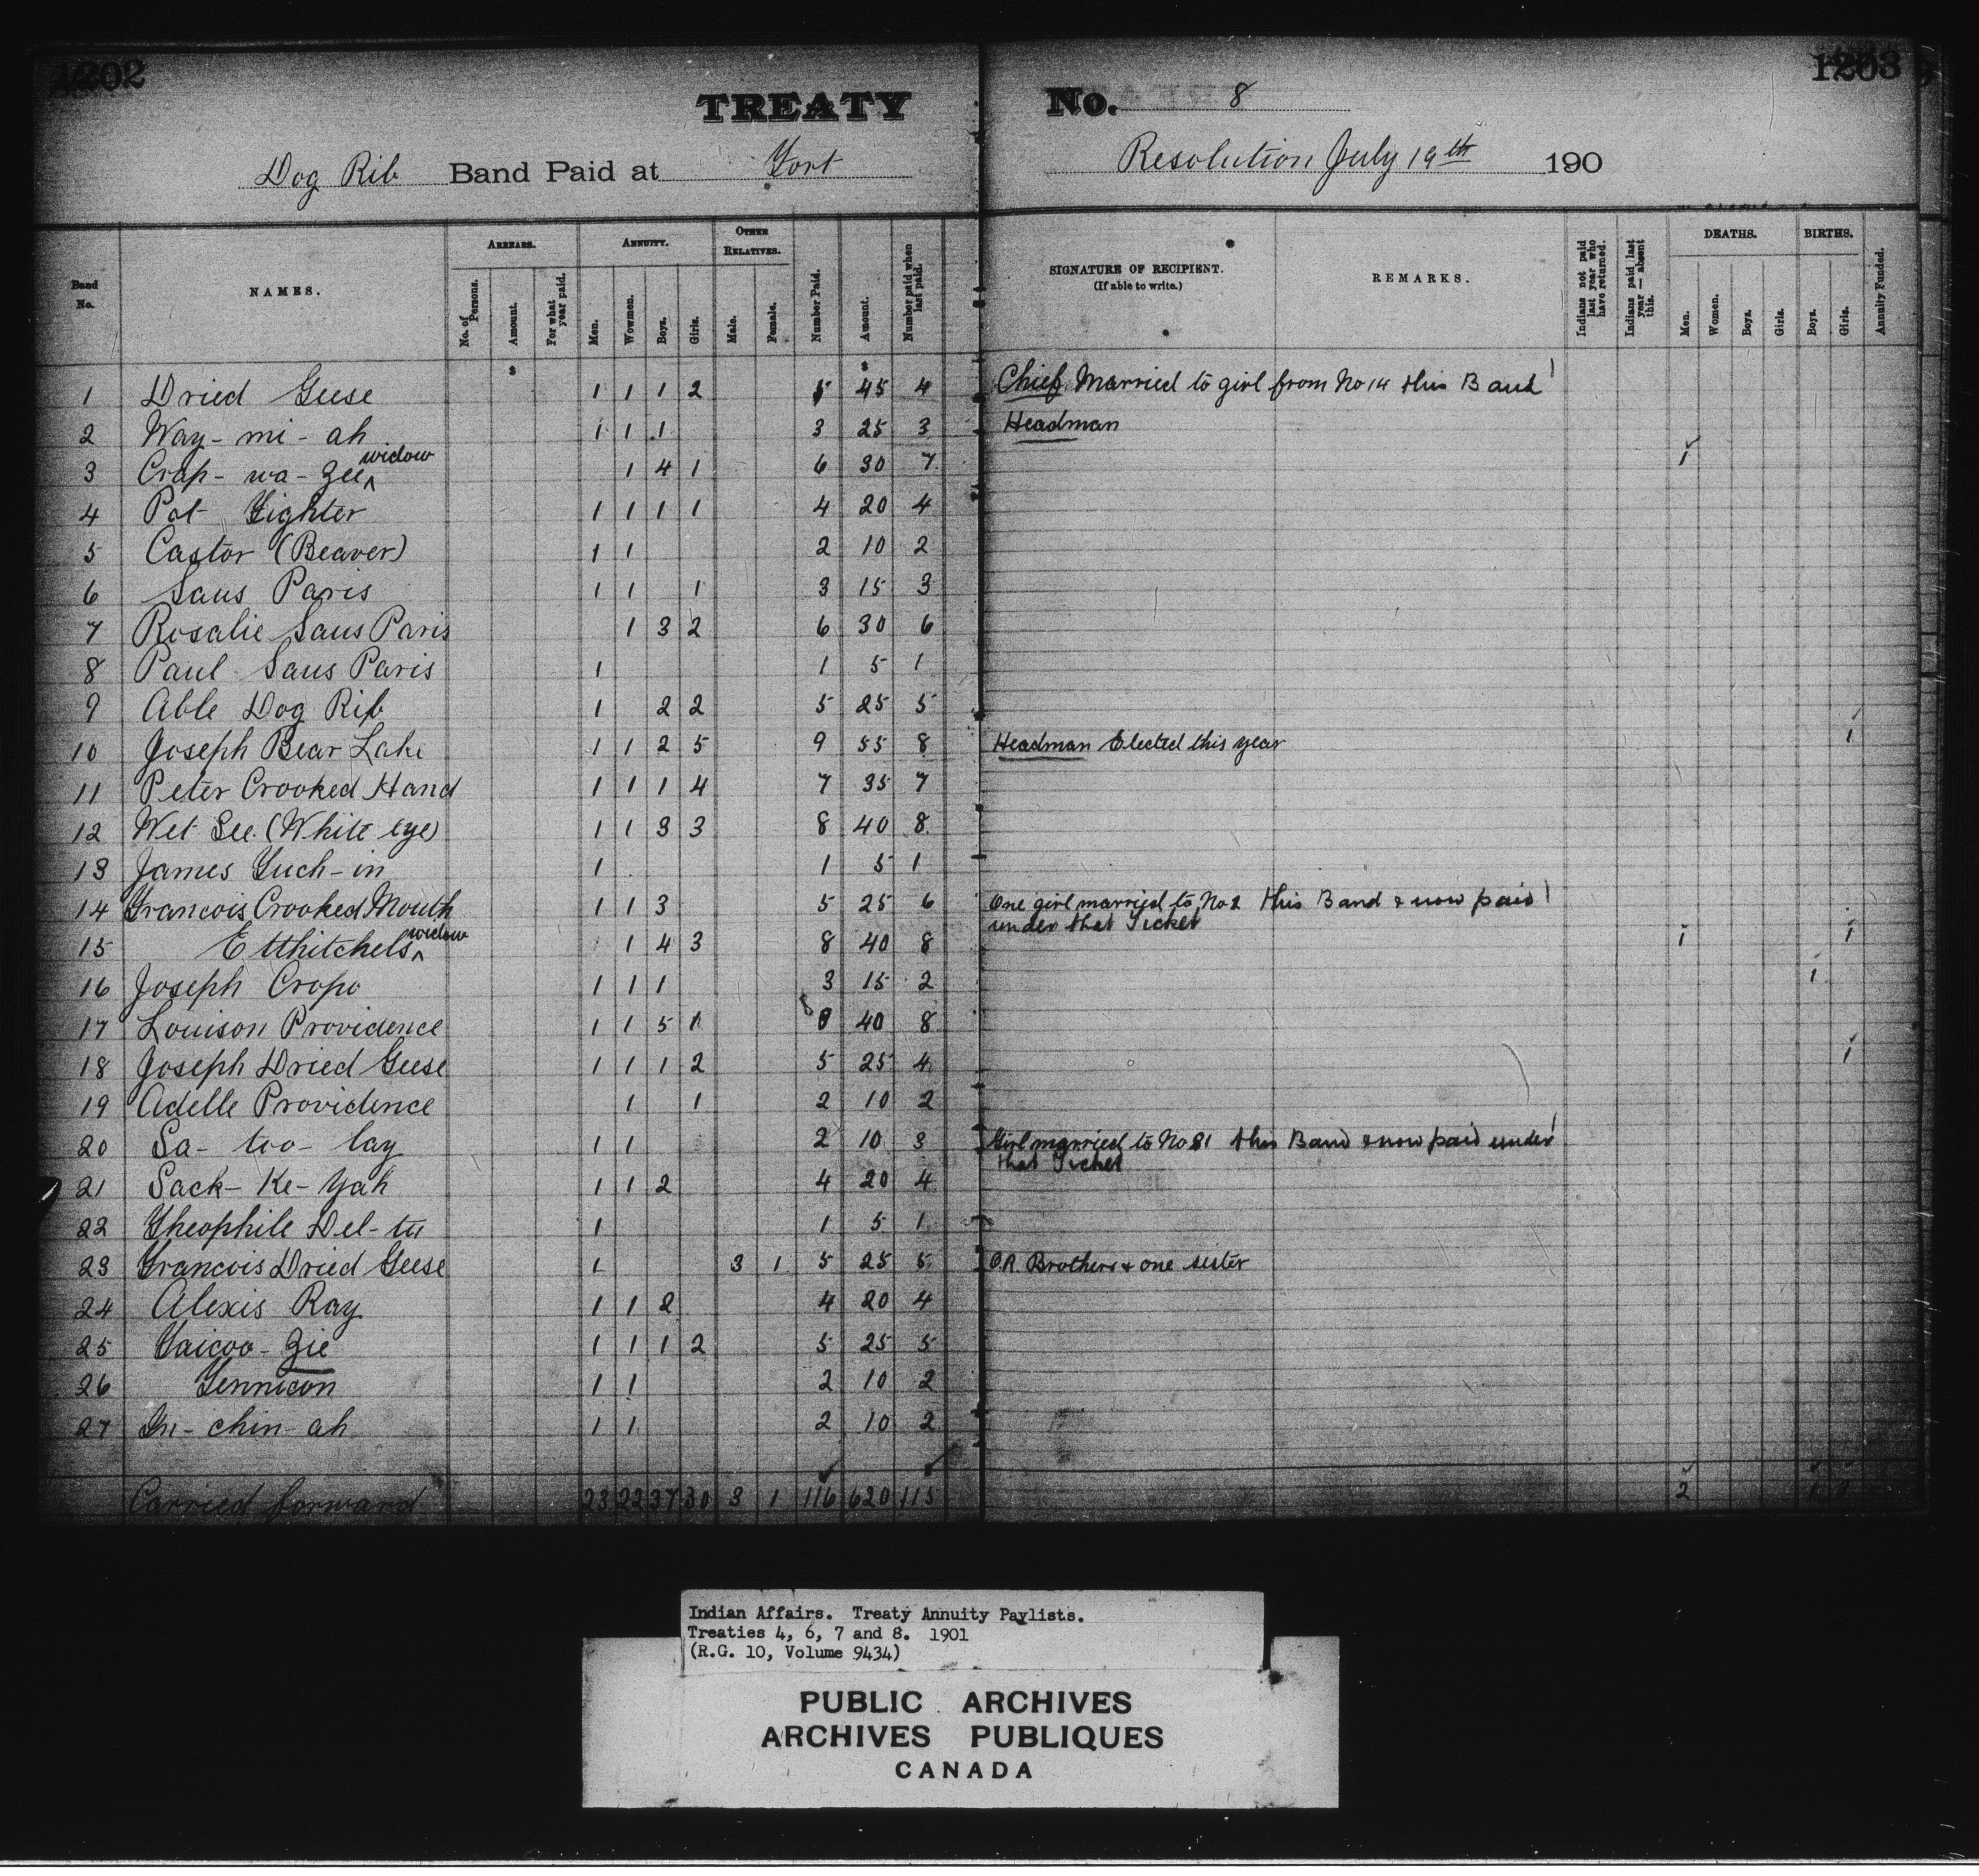 1202
1203
TREATY No. 8
Dog Rib Band Paid at Fort Resolution July 19th 190
Band No. NAMES. ARREARS. No. of Persons. Amount. For what year paid. ANNUITY. Men. Women. Boys. Girls. OTHER RELATIVES. Male. Female. Number Paid. Amount. Number paid when last paid. SIGNATURE OF RECIPIENT. (If able to write.) REMARKS. Indians not paid last year who have returned. Indians paid last year — absent this. DEATHS. Men. Women. Boys. Girls. BIRTHS. Boys. Girls. Annuity Funded.
$ $
1 Dried Geese 1 1 1 2 5 45 4 Chief Married to girl from No 14 this Band
2 Way-mi-ah 1 1 1 3 25 3 Headman
3 Crap-wa-zee widow 1 4 1 6 30 7 1
4 Pot Fighter 1 1 1 1 4 20 4
5 Castor (Beaver) 1 1 2 10 2
6 Saus Paris 1 1 1 3 15 3
7 Rosalie Saus Paris 1 3 2 6 30 6
8 Paul Saus Paris 1 1 5 1
9 Able Dog Rib 1 2 2 5 25 5
10 Joseph Bear Lake 1 1 2 5 9 55 8 Headman Elected this year 1
11 Peter Crooked Hand 1 1 1 4 7 35 7
12 Wet See (White eye) 1 1 3 3 8 40 8
13 James Yuch-in 1 1 5 1
14 Francois Crooked Mouth 1 1 3 5 25 6 One girl married to No 1 this Band & now paid
under that Ticket
15 Etthitchels widow 1 4 3 8 40 8 1 1
16 Joseph Cropo 1 1 1 3 15 2 1
17 Louison Providence 1 1 5 1 8 40 8
18 Joseph Dried Geese 1 1 1 2 5 25 4 1
19 Adelle Providence 1 1 2 10 2
20 Sa-too-lay 1 1 2 10 3 Girl married to No 81 this Band & now paid under
that Ticket
21 Sack-Ke-Yah 1 1 2 4 20 4
22 Theophile Del-tu 1 1 5 1
23 Francois Dried Geese 1 3 1 5 25 5 O.R. Brothers & one sister
24 Alexis Ray 1 1 2 4 20 4
25 Yaicoo-zie 1 1 1 2 5 25 5
26 Yennicon 1 1 2 10 2
27 -chin-ah 1 1 2 10 2
Carried forward 23 22 37 30 3 1 116 620 115 2 1
Indian Affairs. Treaty Annuity Paylists.
Treaties 4, 6, 7 and 8. 1901
(R.G. 10, Volume 9434)
PUBLIC ARCHIVES
ARCHIVES PUBLIQUES
CANADA